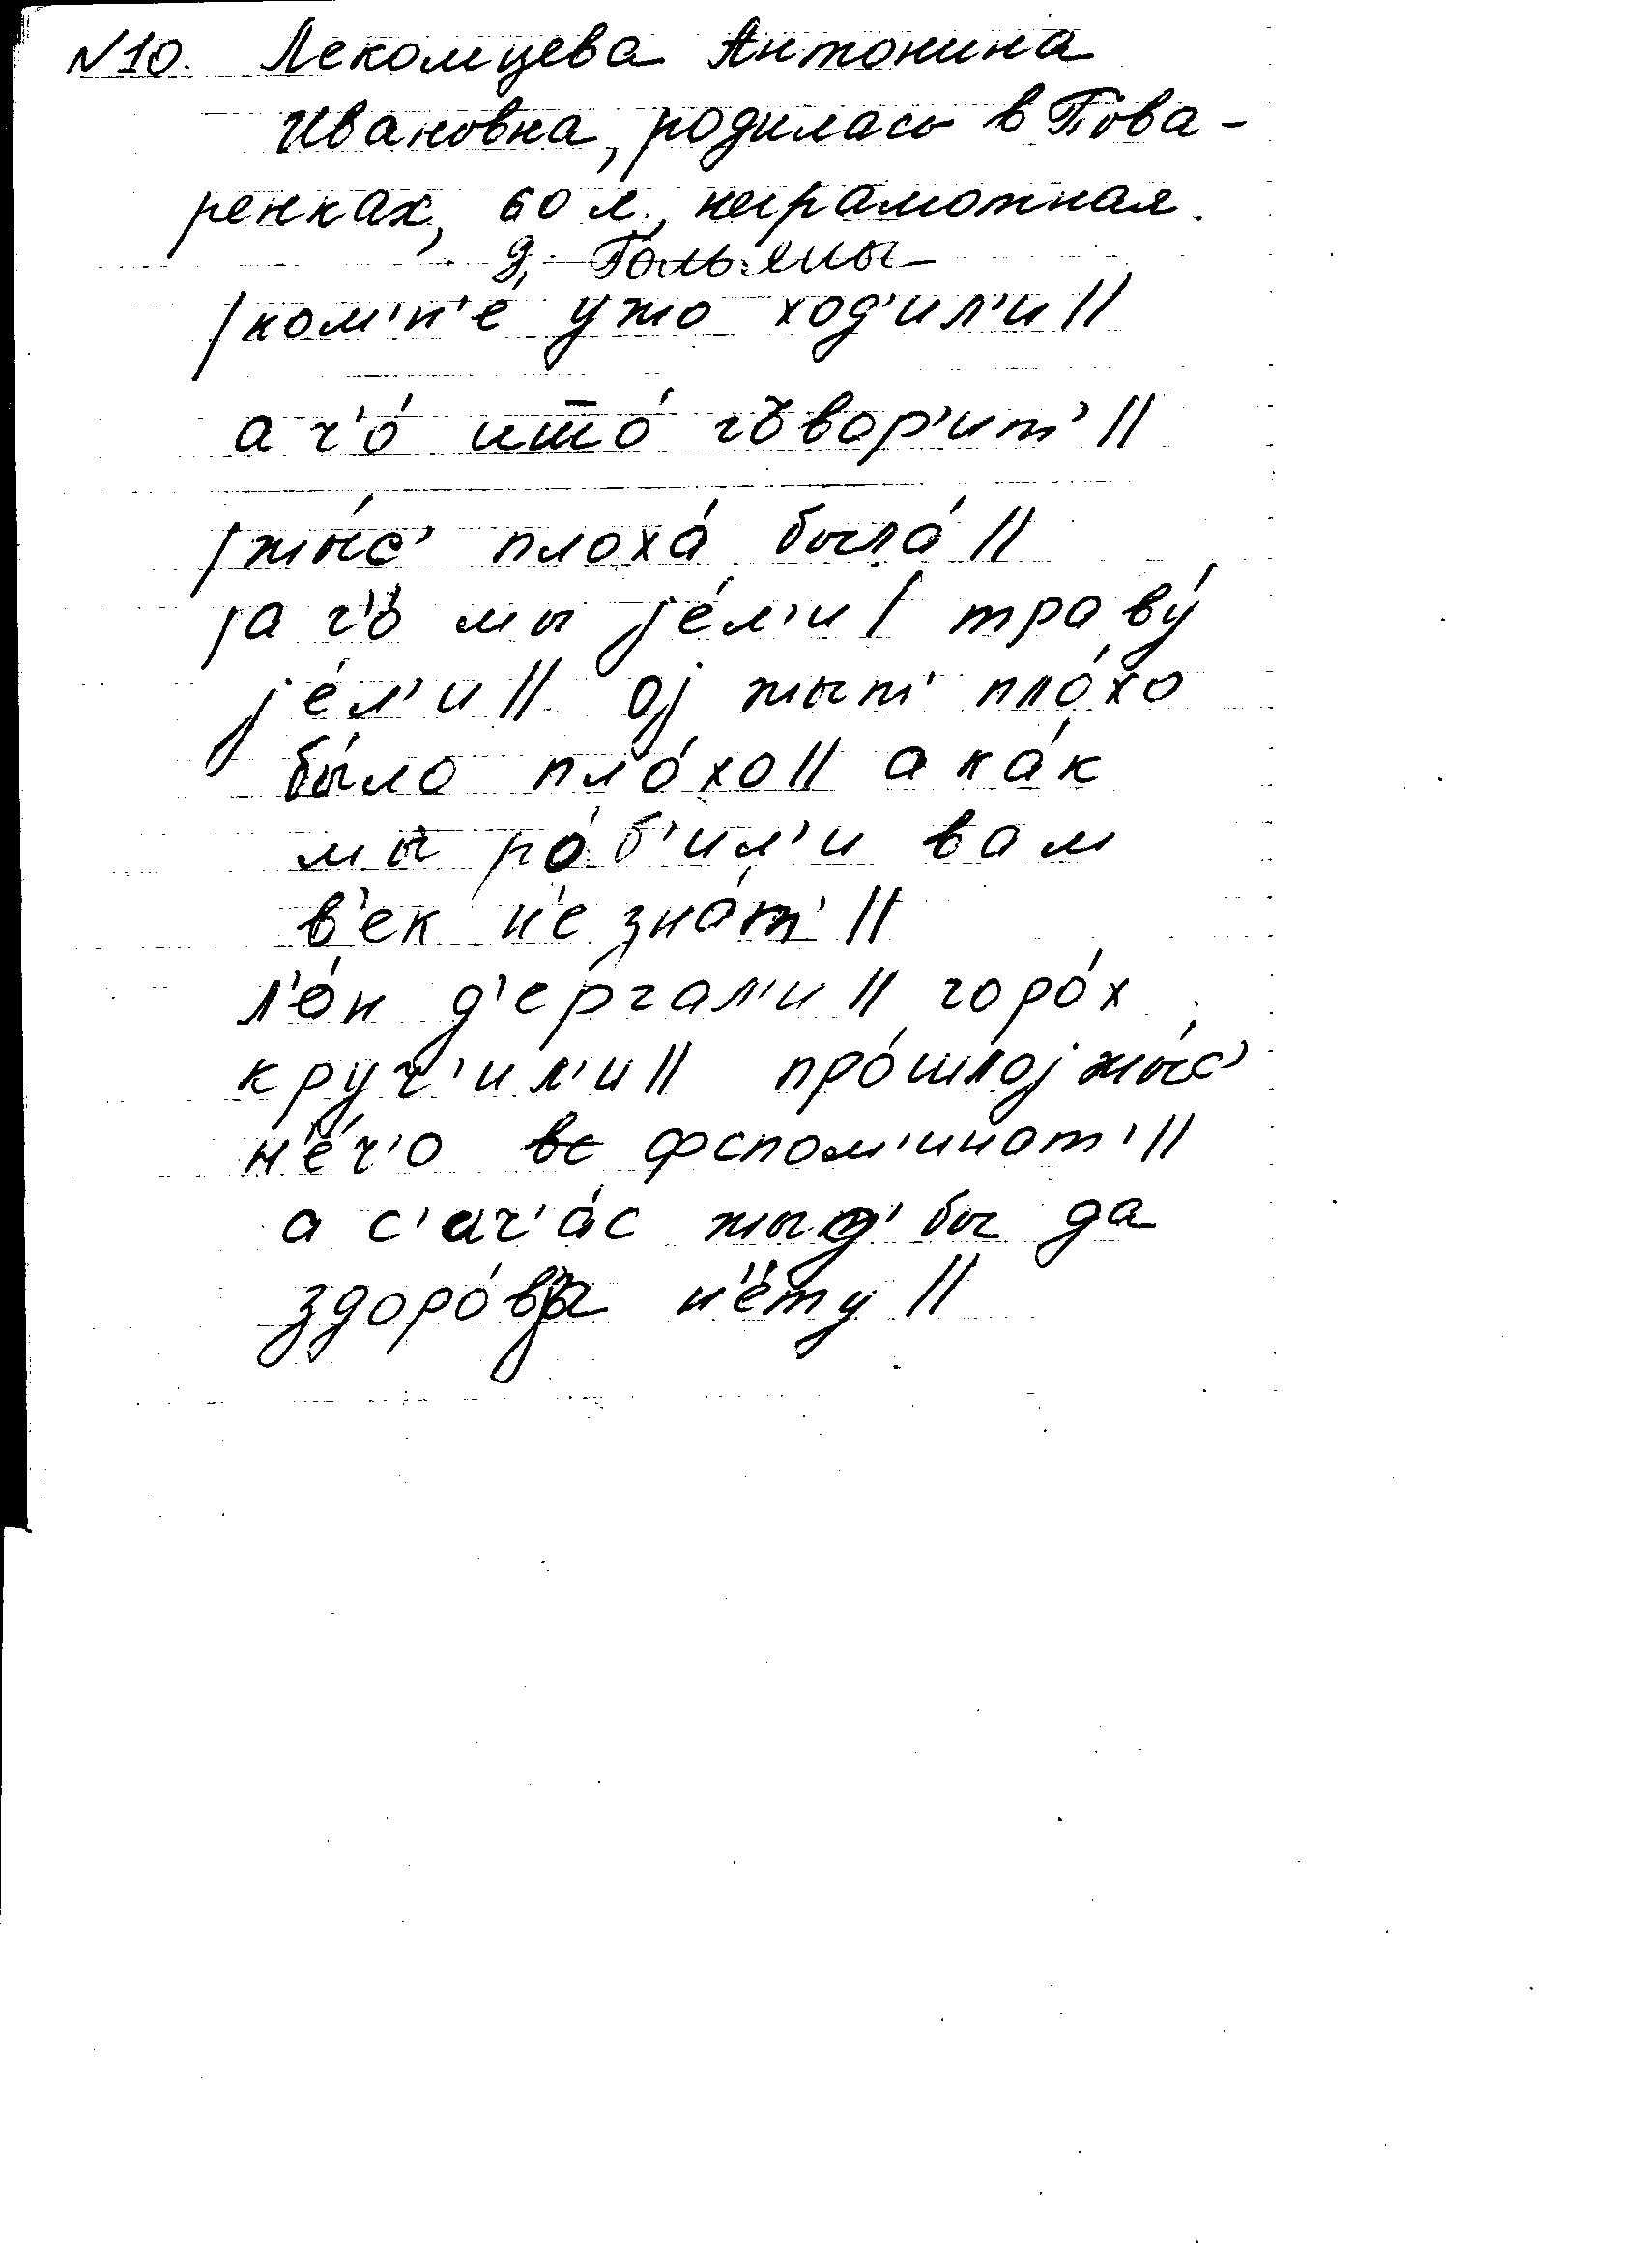 №10. Лекомцева Антонина
Ивановна, родилась в Пова-
ренках, 60 л., неграмотная.
д. Гольяны
/ком'н'е́ ужо ход'ил'и//
а ч'о́ што́ гъвор'ит'//
/жы́с' плоха́ была́//
ја ч'ъ мы је́л'и/ траву́
је́л'и// ој жыт' пло́хо
бы́ло пло́хо// а ка́к
мы ро́б'ил'и вам
в'ек н'е зна́т'//
л'о́н д'ергал'и// горо́х
круч'ил'и// про́шлој жы́с'
н'е́ч'о фспом'инат'//
а с'ич'а́с жыд' бы да
здоро́вја н'е́ту//